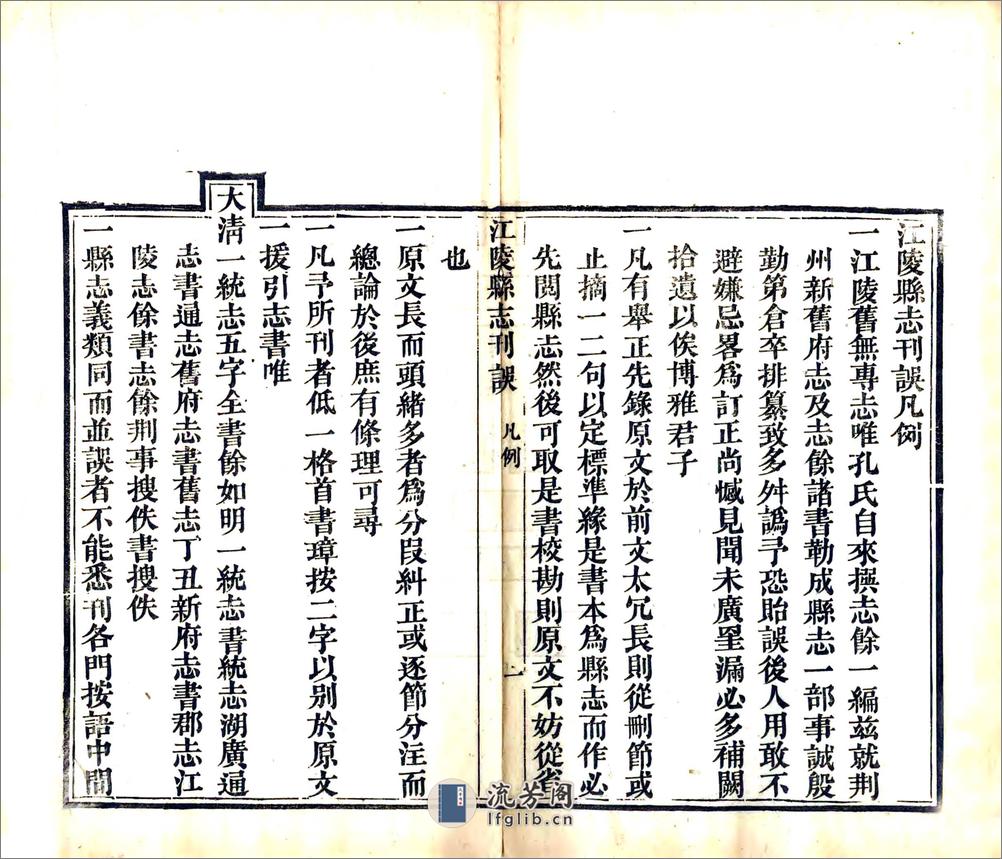 江陵縣志刊誤凡例
一江陵舊無專志唯孔氏自來撰志餘一編茲就荆
州新舊府志及志餘諸書勒成縣志一部事誠殷
勤第倉卒排纂致多舛譌予恐貽誤後人用敢不
避嫌忌畧爲訂正尚憾見聞未廣罣漏必多補闕
拾遺以俟博雅君子
一凡有舉正先錄原文於前文太冗長則從刪節或
止摘一二句以定標準緣是書本爲縣志而作必
先閱縣志然後可取是書校勘則原文不妨從省
江陵縣志刊誤 凡例 一
也
一原文長而頭緒多者爲分段糾正或逐節分注而
總論於後庶有條理可尋
一凡予所刊者低一格首書璋按二字以别於原文
一援引志書唯
大淸一統志五字全書餘如明一統志書統志湖廣通
志書通志舊府志書舊志丁丑新府志書郡志江
陵志餘書志餘荆事搜佚書搜佚
一縣志義類同而並誤者不能悉刊各門按語中間
流芳阁
lfglib.cn